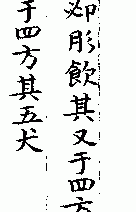 肜飲其又于四方
于四方其五犬